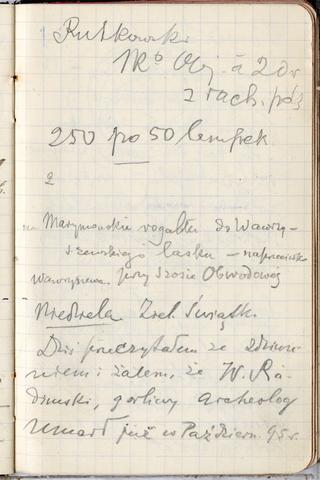 Rutkowski
250 po 50 lempek
2
na Marymonckie rogatki do Wawrzy-
szewskiego lasku - naprzeciwko
Wawrzyszewa. przy szosie Obwodowej
Niedziela Ziel. Świątk.
Dziś przeczytałem ze zdziwie-
niem i żalem, że W. Ra-
dzimski, gorliwy archeolog
umarł już w Paździer. 95 r.